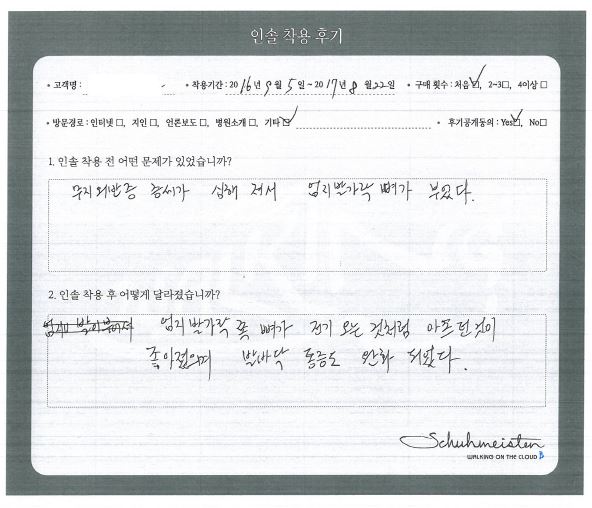 인솔 착용 후기
• 고객명 : • 착용기간 : 2016년 9월 5일 ~ 2017년 8월 22일 • 구매 횟수 : 처음☑, 2~3□, 4이상□
• 방문경로 : 인터넷□, 지인□, 언론보도□, 병원소개□, 기타☑ • 후기공개동의 : Yes☑, No□
1. 인솔 착용 전 어떤 문제가 있었습니까?
무지외반증 증세가 심해 져서 엄지발가락 뼈가 부었다.
2. 인솔 착용 후 어떻게 달라졌습니까?
엄지발가락 쪽 뼈가 전기 오는 것처럼 아프던 것이
좋아졌으며 발바닥 통증도 완화 되었다.
Schuhmeister
WALKING ON THE CLOUD B